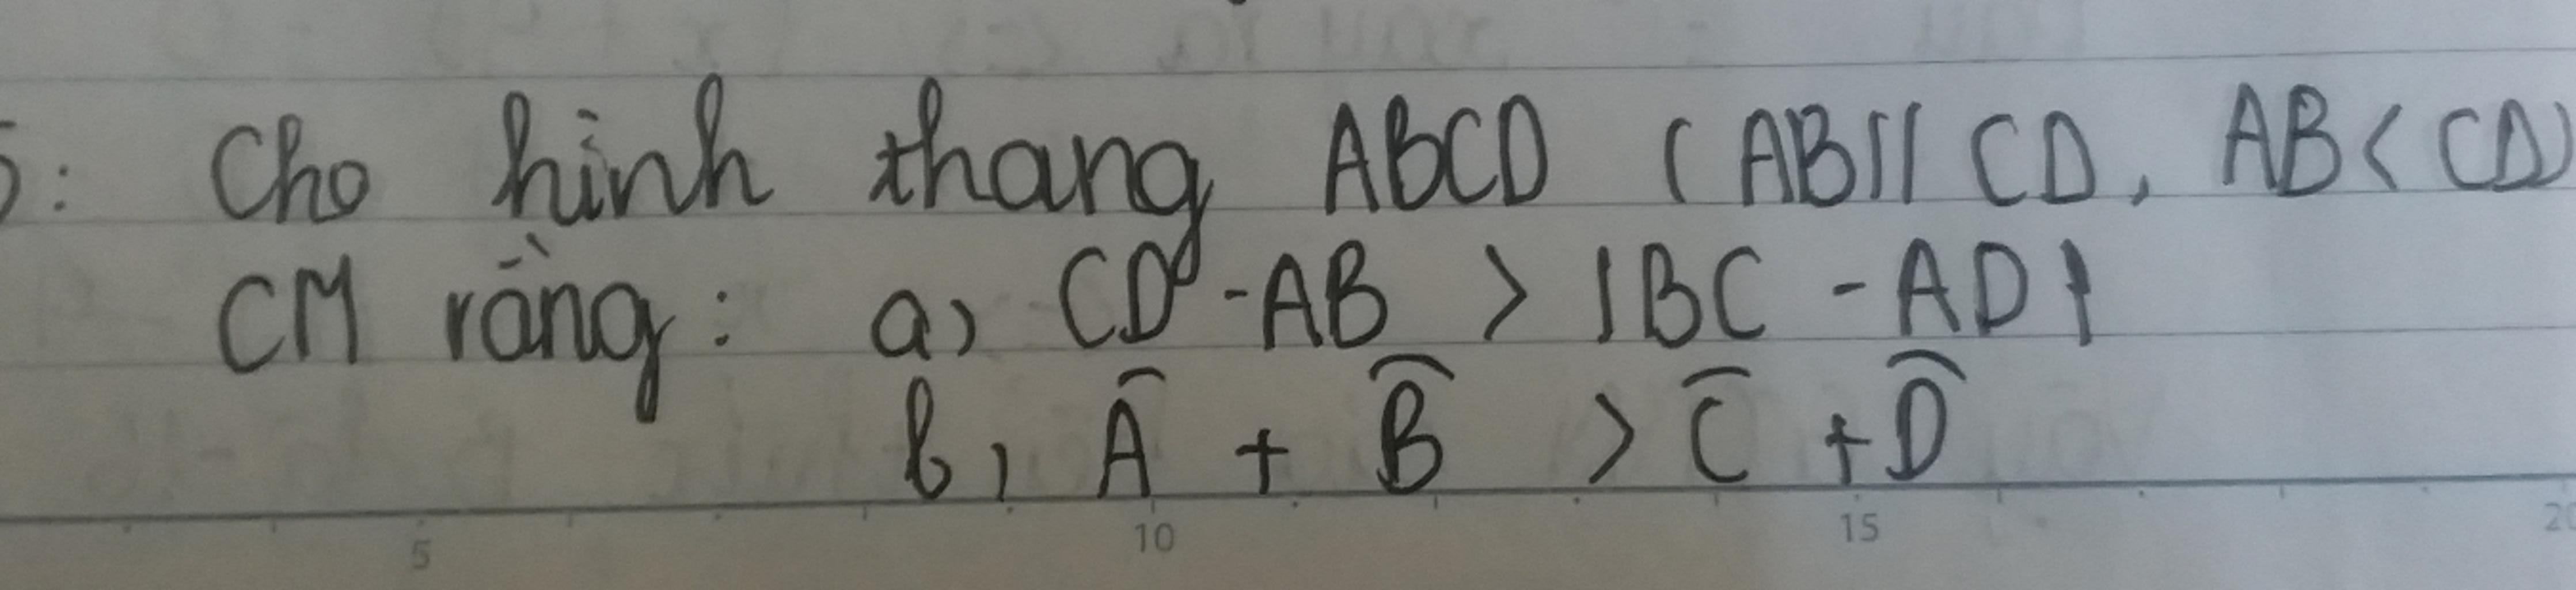 5: Cho hình thang ABCD ( AB // CD, AB < CD)
CM rằng: a) CD - AB > |BC - AD|
b) Â + B̂ > Ĉ + D̂
5 10 15 20